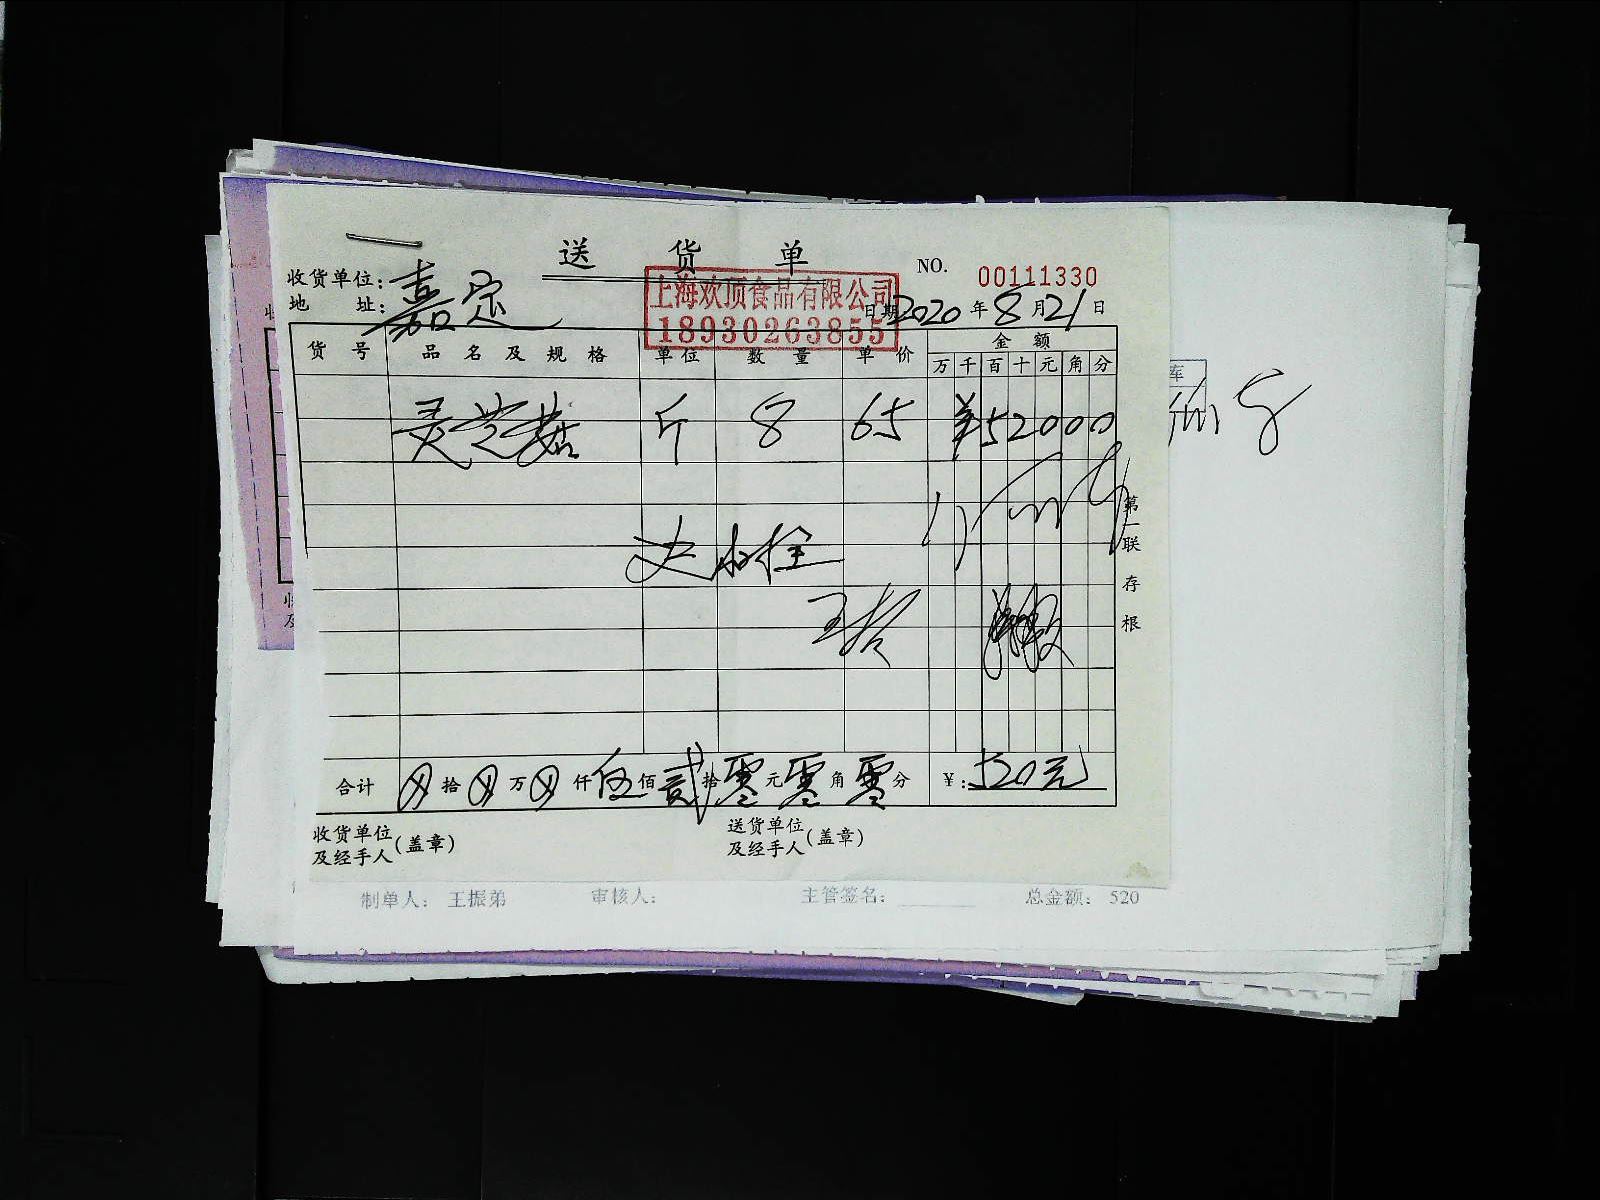 送货单
NO. 00111330
收货单位: 嘉定
地 址:
上海欢顶食品有限公司
18930263855
日期 2020 年 8 月 21 日
货号 品名及规格 单位 数量 单价 金额
万 千 百 十 元 角 分
灵芝菇 斤 8 65 ¥52000
第一联 存根
合计 ⊗ 拾 ⊗ 万 ⊗ 仟 伍 佰 贰 拾 零 元 零 角 零 分 ¥: 520元
收货单位及经手人(盖章)
送货单位及经手人(盖章)
制单人: 王振弟 审核人: 主管签名: 总金额: 520